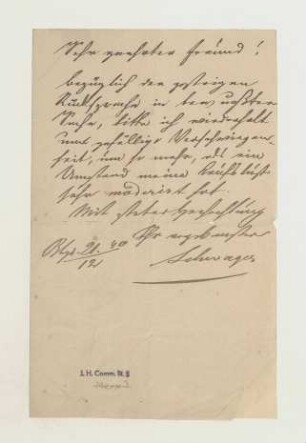 Sehr geehrter Freund!
bezüglich der gestrigen
Rücksprache in der
Sache, bitte ich wiederholt
um gefällige Verschwiegen-
heit, um so mehr, als ein
Umstand meine
sehr hat.
Mit steter Hochachtung
Ihr ergebenster
21. 90
12
Schwager
I. H. Comm. N. 8